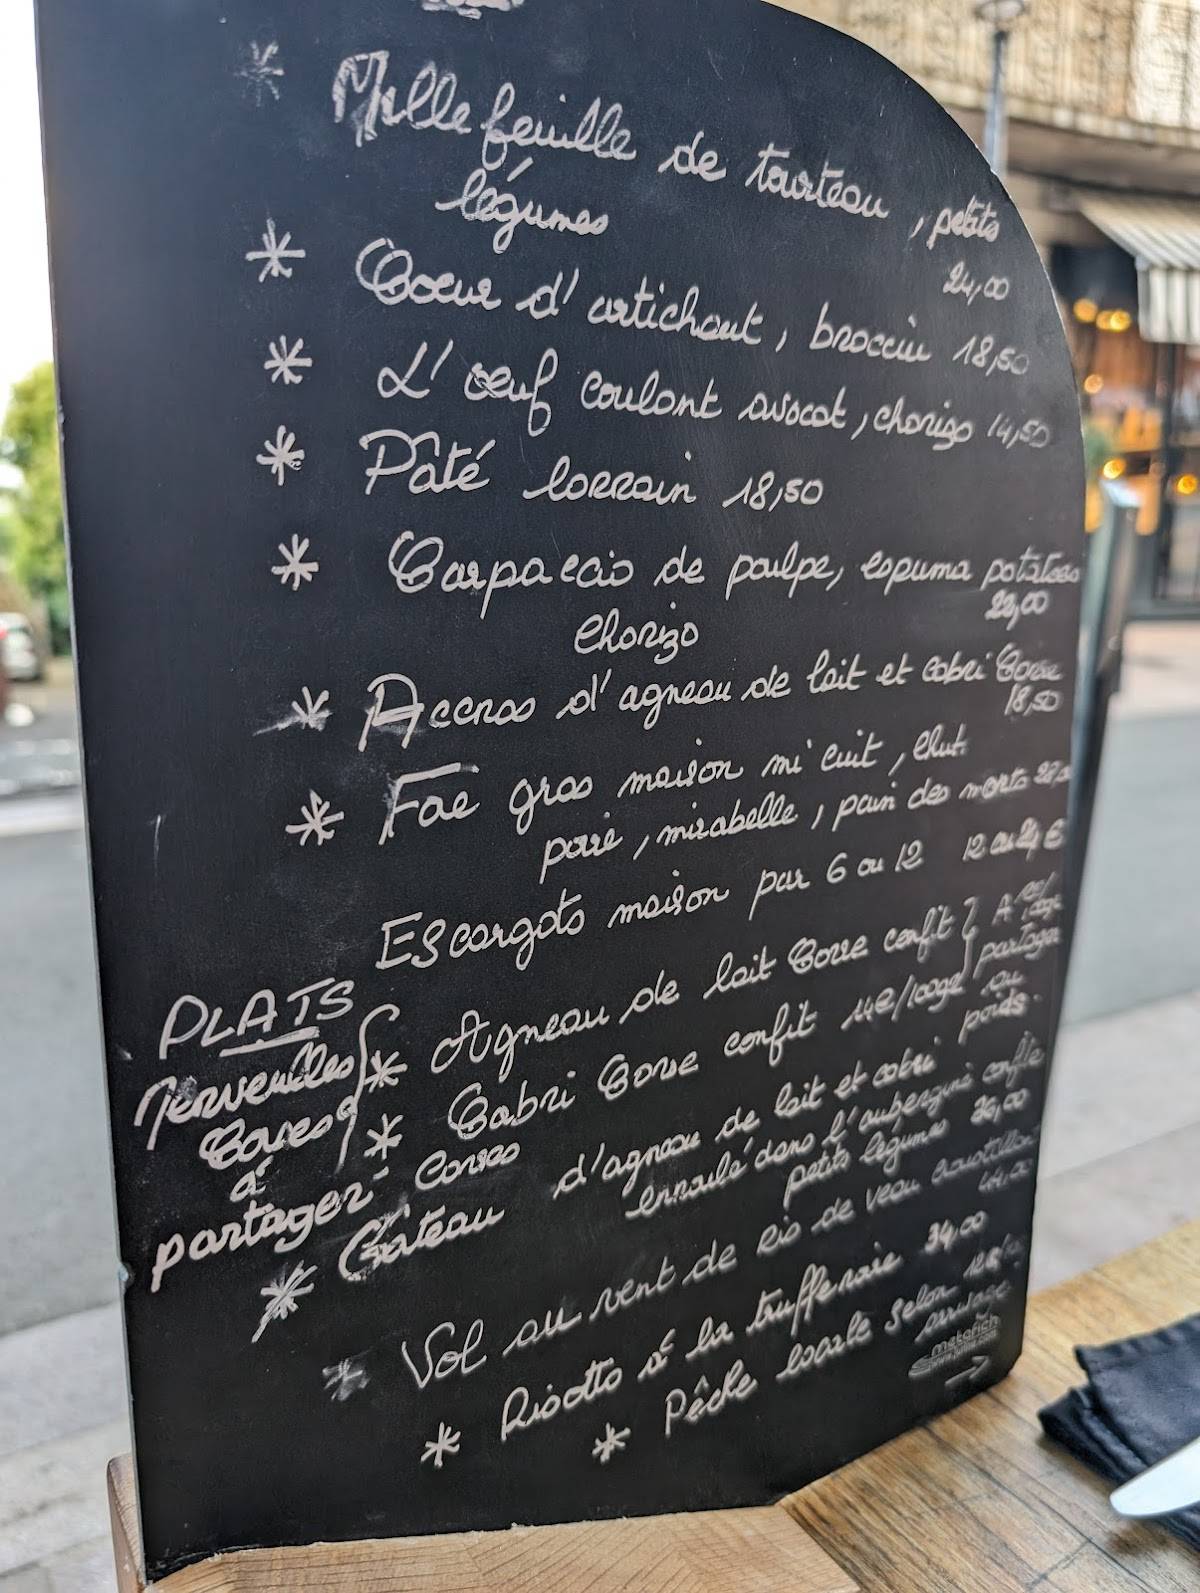 * Millefeuille de tourteau, petits
légumes 24,00
* Coeur d'artichaut, brocciu 18,50
* L'œuf coulant avocat, chorizo 14,50
* Pâté lorrain 18,50
* Carpaccio de poulpe, espuma potatoes
Chorizo 22,00
* Accras d'agneau de lait et cabri Corse
18,50
* Foie gras maison mi cuit, chut.
poire, mirabelle, pain des morts
Escargots maison par 6 ou 12 12 ou 24 €
PLATS
Merveilles Corses à partager
* Agneau de lait Corse confit } A partager
* Cabri Corse confit 14€/100gr au poids.
* Gâteau d'agneau de lait et cabri Corses
enroulé dans l'aubergine confite
petits légumes 26,00
* Vol au vent de ris de veau croustillant
* Risotto à la truffe noire 34,00
* Pêche locale selon arrivage
metafich